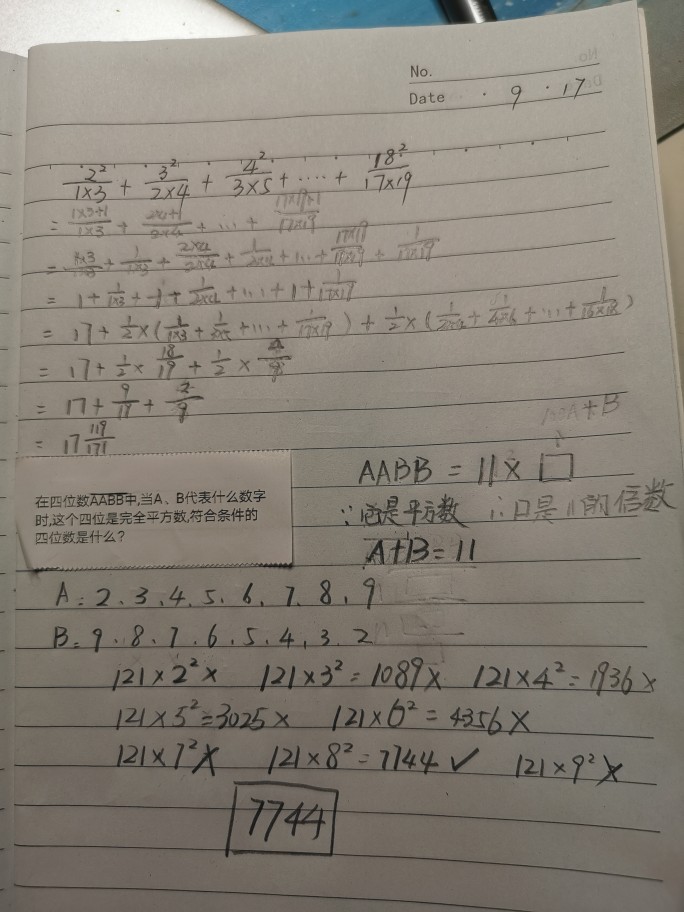 No.
Date · 9 · 17
2²/1×3 + 3²/2×4 + 4²/3×5 + ···· + 18²/17×19
= 1×3+1/1×3 + 2×4+1/2×4 + ... + 17×19+1/17×19
= 1×3/1×3 + 1/1×3 + 2×4/2×4 + 1/2×4 + ... + 17×19/17×19 + 1/17×19
= 1 + 1/1×3 + 1 + 1/2×4 + ... + 1 + 1/17×19
= 17 + 1/2 × (1/1×3 + 1/3×5 + ... + 1/17×19) + 1/2 × (1/2×4 + 1/4×6 + ... + 1/16×18)
= 17 + 1/2 × 18/19 + 1/2 × 4/9
= 17 + 9/19 + 2/9
= 17 119/171
100A+B
AABB = 11 × □
在四位数AABB中,当A、B代表什么数字
时,这个四位是完全平方数,符合条件的
四位数是什么?
∵它是平方数 ∴口是11的倍数
A+B=11
A: 2、3、4、5、6、7、8、9
B: 9、8、7、6、5、4、3、2
121×2² × 121×3² = 1089 × 121×4² = 1936 ×
121×5² = 3025 × 121×6² = 4356 ×
121×7² × 121×8² = 7744 ✓ 121×9² ×
7744